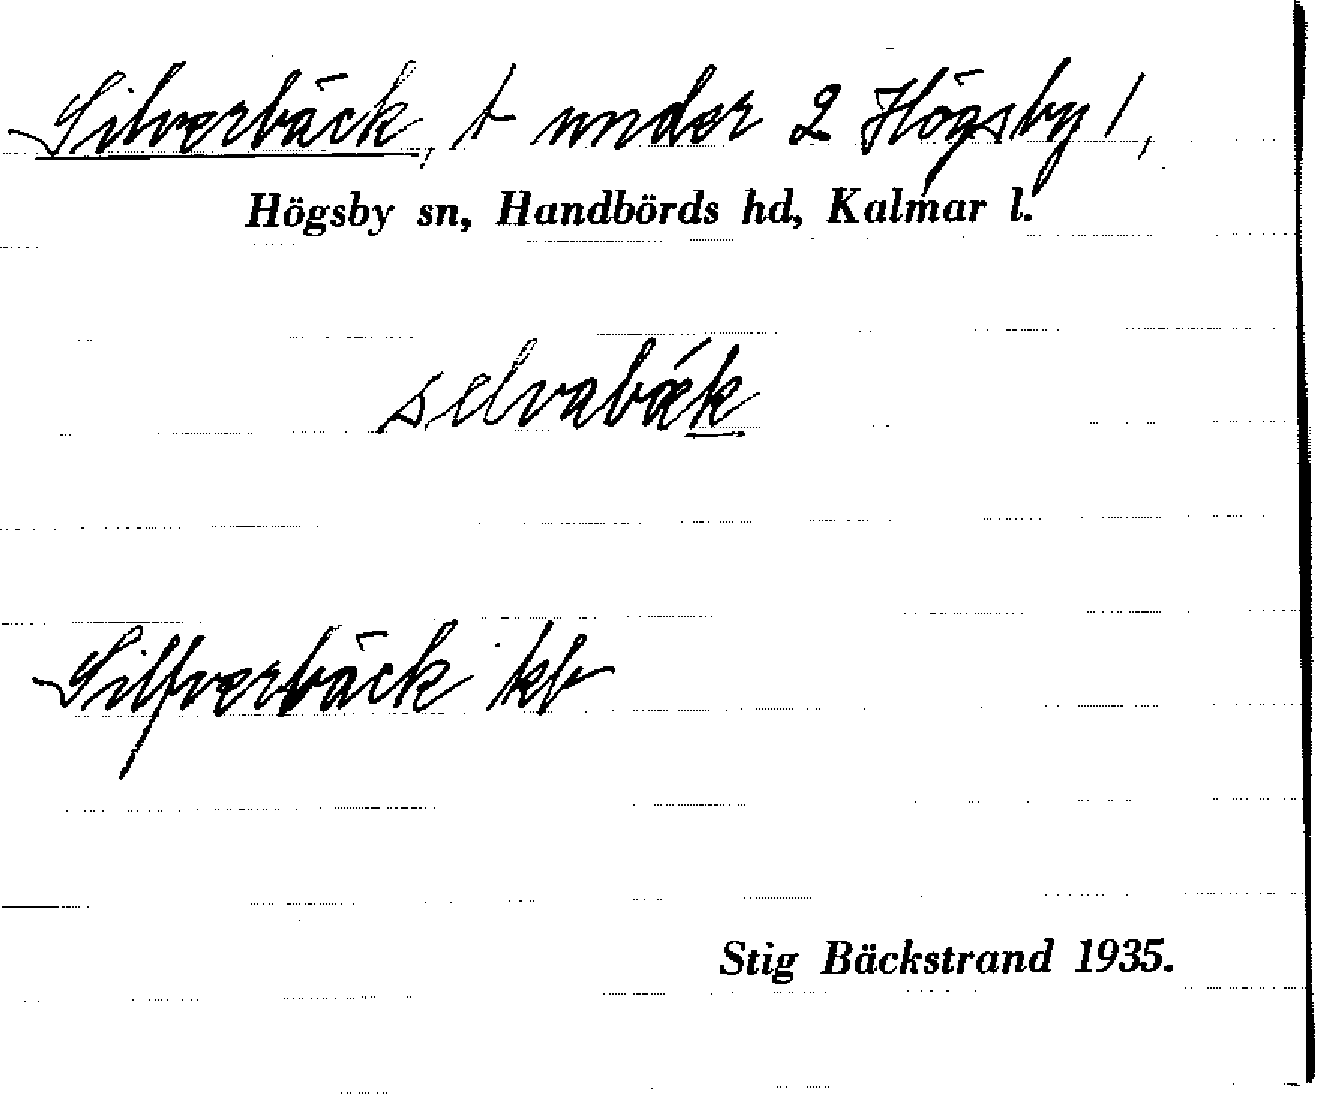 Silverbäck, t under 2 Högsby 1,
Högsby sn, Handbörds hd, Kalmar l.
selvabǽk
Silfverbäck kb
Stig Bäckstrand 1935.